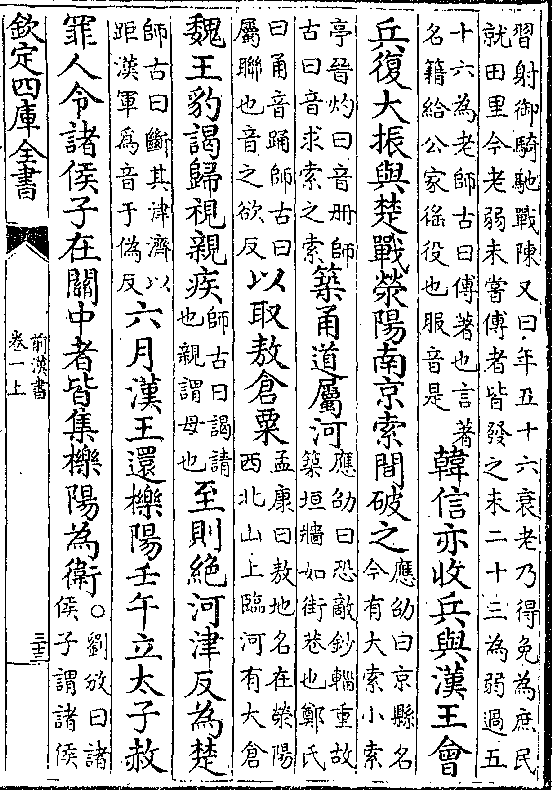 習射御騎馳戰陳又曰年五十六衰老乃得免為庶民
就田里今老弱未嘗傅者皆發之未二十三為弱過五
十六為老師古曰傅著也言著
名籍給公家徭役也服音是
韓信亦收兵與漢王會
兵復大振與楚戰滎陽南京索間破之
應劭曰京縣名
今有大索小索
亭晉灼曰音册師
古曰音求索之索
築甬道屬河
應劭曰恐敵鈔輜重故
築垣牆如街巷也鄭氏
曰甬音踊師古曰
屬聯也音之欲反
以取敖倉粟
孟康曰敖地名在滎陽
西北山上臨河有大倉
魏王豹謁歸視親疾
師古曰謁請
也親謂母也
至則絕河津反為楚
師古曰斷其津濟以
距漢軍為音于偽反
六月漢王還櫟陽壬午立太子赦
罪人令諸侯子在關中者皆集櫟陽為衛○
劉攽曰諸
侯子謂諸侯
欽定四庫全書
前漢書
卷一上
三十三